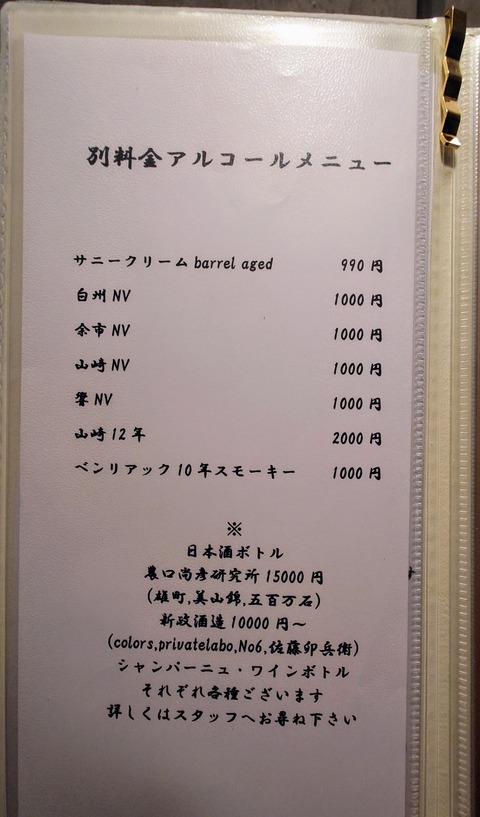 別料金アルコールメニュー
サニークリーム barrel aged 990 円
白州 NV 1000 円
余市 NV 1000 円
山崎 NV 1000 円
響 NV 1000 円
山崎 12 年 2000 円
ベンリアック 10 年スモーキー 1000 円
※
日本酒ボトル
農口尚彦研究所 15000 円
(雄町,美山錦,五百万石)
新政酒造 10000 円～
(colors,privatelabo,No6,佐藤卯兵衛)
シャンパーニュ・ワインボトル
それぞれ各種ございます
詳しくはスタッフへお尋ね下さい